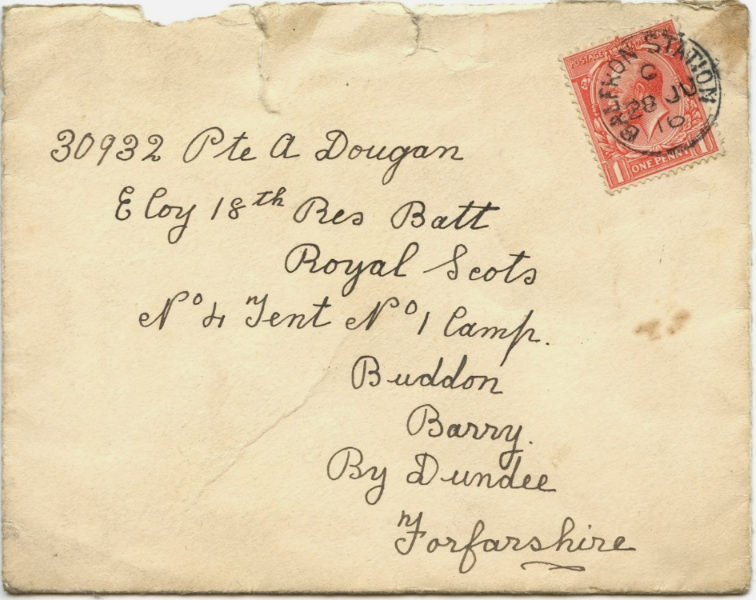 BALFRON STATION
C
28 JU
16
POSTAGE
1 ONE PENNY 1
30932 Pte A Dougan
E Coy 18th Res Batt
Royal Scots
No 4 Tent No 1 Camp.
Buddon
Barry.
By Dundee
Forfarshire